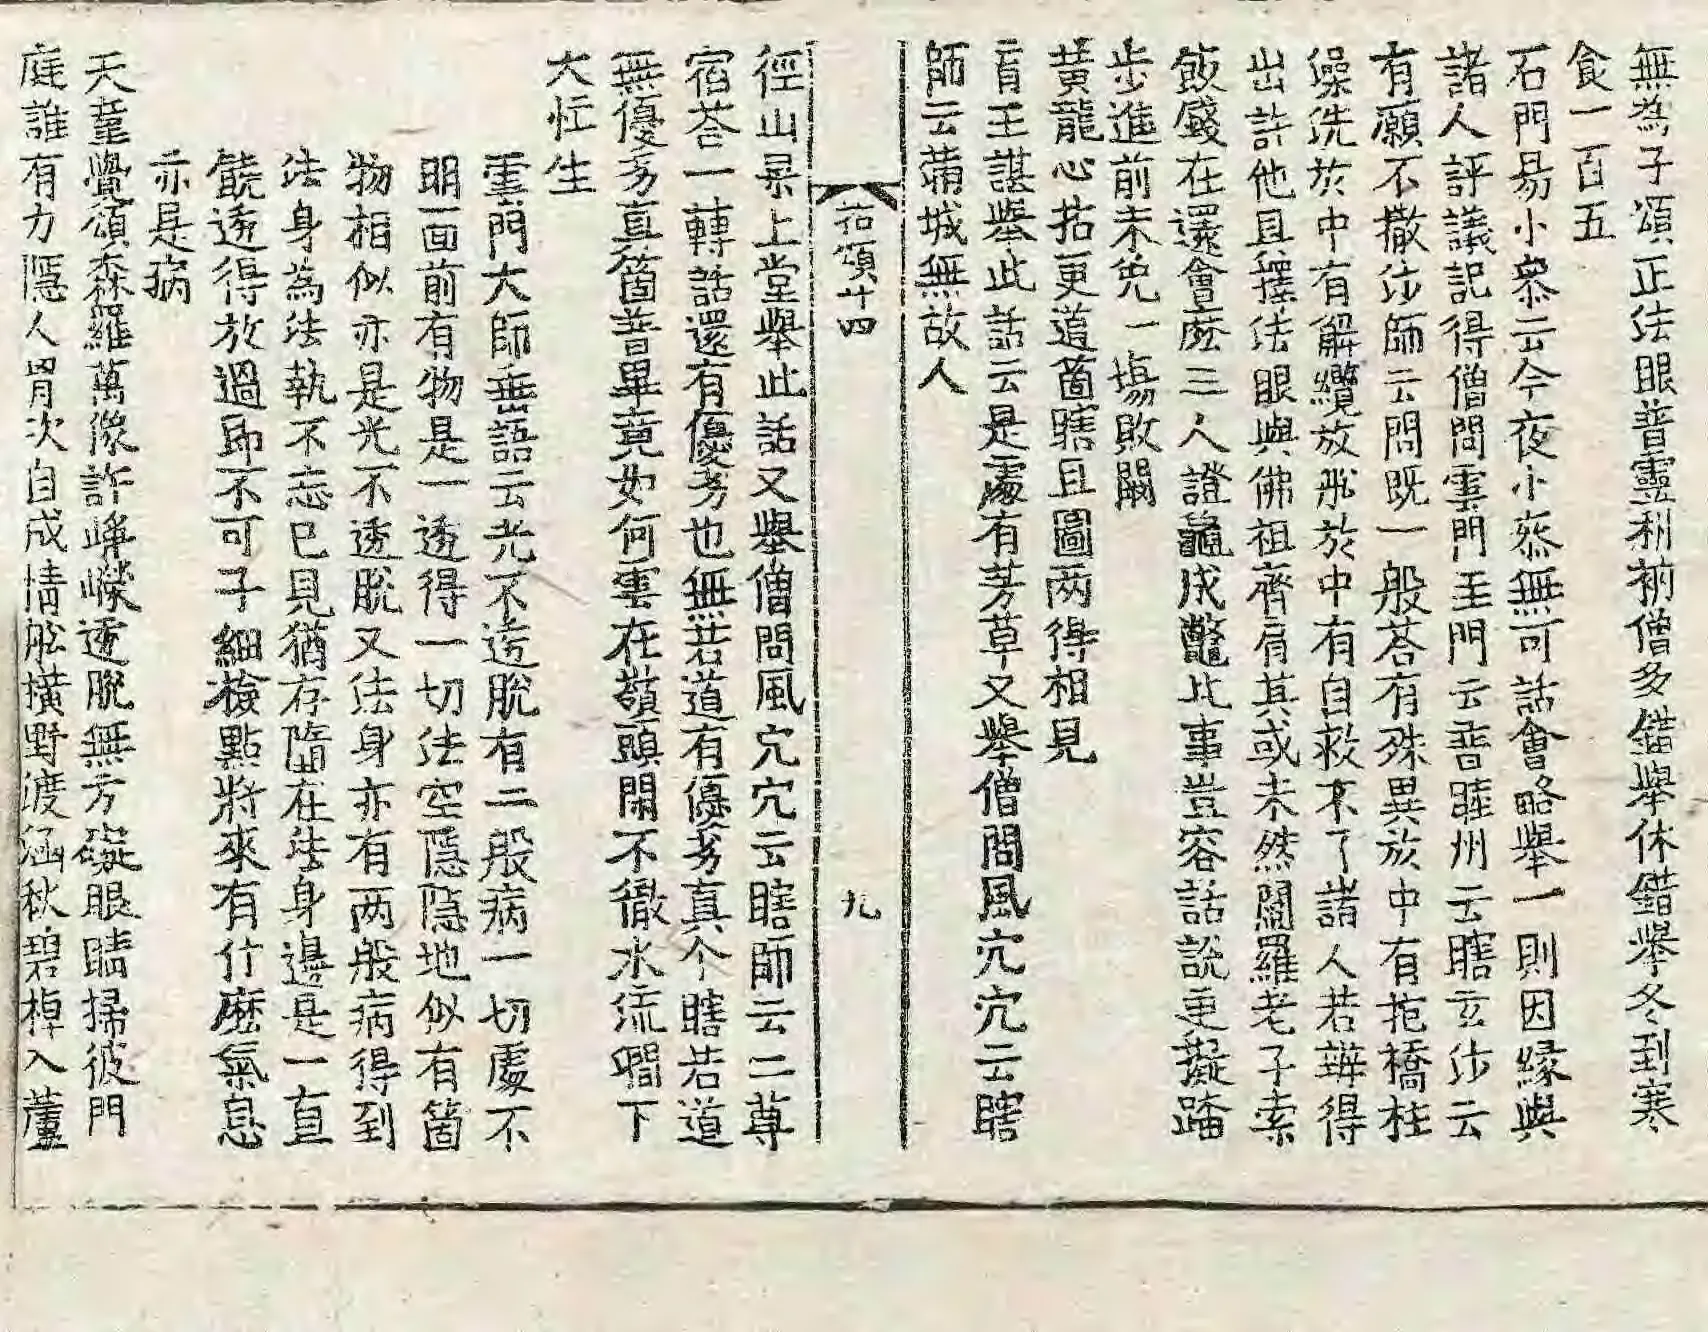 無為子頌正法眼普靈利衲僧多錯擧休錯擧冬到寒
食一百五
石門易小叅云今夜小叅無可話會略擧一則因緣與
諸人評議記得僧問雲門至門云普睦州云瞎玄沙云
有願不撒沙師云問旣一般荅有殊異於中有抱橋柱
澡洗於中有解纜放舩於中有自救不了諸人若辨得
出許他且擇法眼與佛祖齊肩其或未然閻羅老子索
飯錢在還會麽三人證龜成鼈此事豈容話說更擬踏
步進前未免一場敗闕
黃龍心拈更道箇瞎且圖兩得相見
育王諶擧此話云是處有芳草又擧僧問風穴穴云瞎
師云蒲城無故人
拈頌十四 九
徑山杲上堂擧此話又擧僧問風穴穴云瞎師云二尊
宿荅一轉話還有優劣也無若道有優劣真个瞎若道
無優劣真箇普畢竟如何雲在嶺頭閑不徹水流澗下
大忙生
雲門大師垂語云光不透脫有二般病一切處不
明面前有物是一透得一切法空隱隱地似有箇
物相似亦是光不透脫又法身亦有兩般病得到
法身為法執不忘已見猶存隨在法身邊是一直
饒透得放過即不可子細檢點將來有什麽氣息
亦是病
天童覺頌森羅萬像許崢嶸透脫無方礙眼睛掃彼門
庭誰有力隱人胷次自成情舩橫野渡涵秋碧棹入蘆